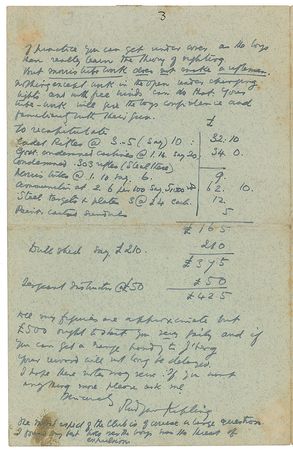 3
of practice you can get under cover as the boys
can really learn the theory of sighting
But morris tube work does not make a rifleman.
Nothing except work in the open under changing
lights and with free winds can do that. Your
tube-work will give the boys confidence and
familiarity with their guns.
To recapitulate £
Cadet Rifles @ 3.5 (say) 10: 32.10
Govt. condemned carbines @ 1.14 say 20 34.0.
Condemned .303 rifles (
Morris tubes @ 1.10 say. 6. 9.
Ammunition at 2.6 per 100 say 5,000 62.10.
Steel targets & plates 3 @ £4 each. 12
5
£165
Drill shed say £210. 210
£375
Sergeant Instructor @ £50 50
£425
All my figures are approximate but
£500 ought to start you very fairly and if
you can get a range handy to
your reward will not long be delayed.
I hope these notes may serve. If you want
anything more please ask me
Sincerely
Rudyard Kipling
The moral aspect of the Club is of course a large question
the boys the threat of
expulsion.